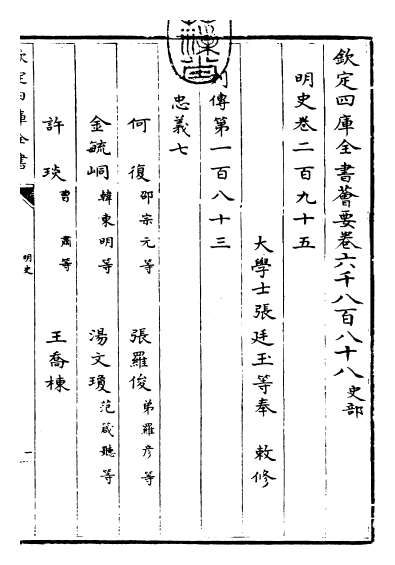 欽定四庫全書薈要卷六千八百八十八 史部
明史卷二百九十五
大學士張廷玉等奉 敕修
列傳第一百八十三
忠義七
何復 邵宗元等 張羅俊 弟羅彥等
金毓峒 韓東明等 湯文瓊 范箴聽等
許琰 曹肅等 王喬棟
欽定四庫全書 明史 一